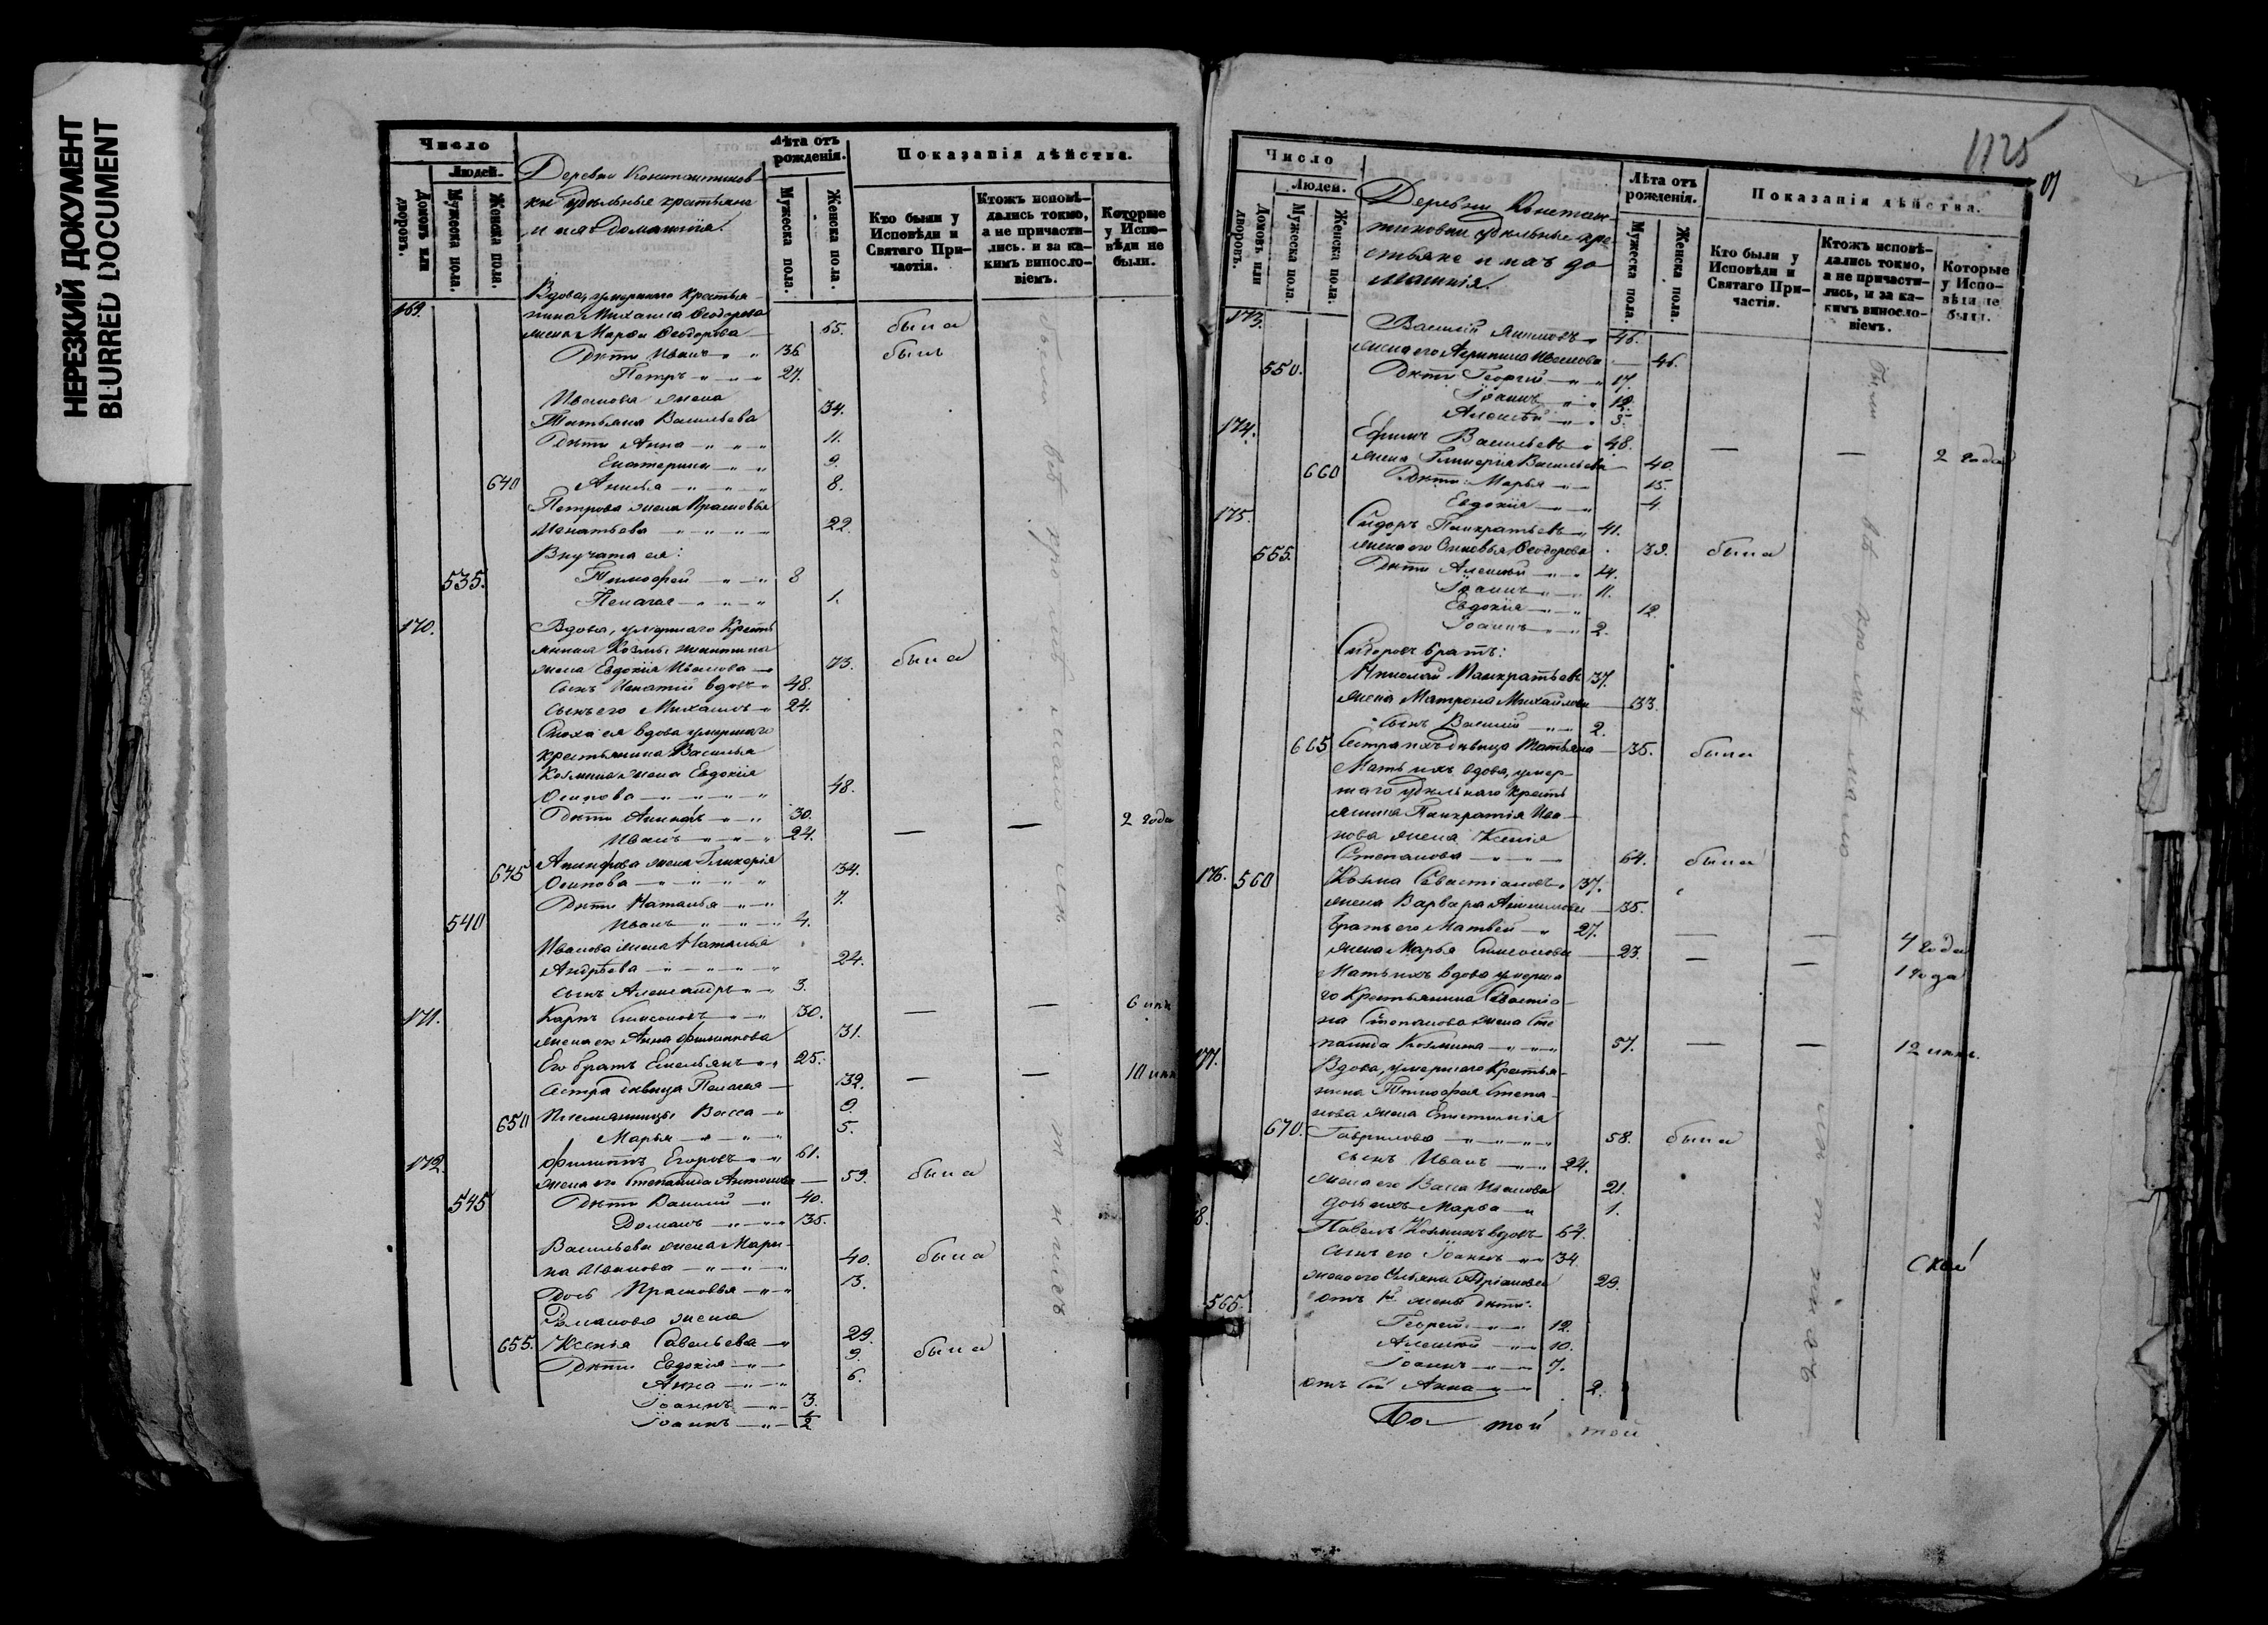 НЕРЕЗКИЙ ДОКУМЕНТ
BLURRED DOCUMENT
Число
Людей.
Домовъ или дворовъ.
Мужеска пола.
Женска пола.
Деревни Константиновки удѣльные крестьяне и ихъ домашніе.
Лѣта отъ рожденія.
Мужеска пола.
Женска пола.
Показанія дѣйства.
Кто были у Исповѣди и Святаго Причастія.
Ктожъ исповѣдались токмо, а не причастились. и за какимъ винословіемъ.
Которые у Исповѣди не были.
169. Вдова, умершаго крестья-
нина Михаила Ѳеодорова
жена Марѳа Ѳеодорова 65. была
Дѣти Иванъ 36 былъ
Петръ 27.
Иванова жена
Татьяна Васильева 34.
Дѣти Анна 11.
Екатерина 9.
640 8.
Петрова жена Прасковья
Игнатьева 22
Внучата ея:
535. Тимоѳей 8
Пелагея 1.
170. Вдова, умершаго кресть
янина Козмы Никитина
жена Евдокія Иванова 73. была
сынъ Игнатій вдовъ 48.
сынъ его Михаилъ 24.
Сноха ея вдова умершаго
крестьянина Василья
Козмина жена Евдокія
Осипова 48.
Дѣти 30.
Иванъ 24. — — 2 года
645 жена Гликерія
Осипова 34.
Дѣти Наталья 7.
540 Иванъ 4.
Иванова жена Наталья
Андрѣева 24.
сынъ Александръ 3.
171. Карпъ Симеоновъ 30. — — 6
жена его Анна Филиппова 31.
Его братъ Емельянъ 25.
Сестра дѣвица Пелагея 32. — — 10
650 Племянницы Васса 9.
Марья 5.
172. Филиппъ Егоровъ 61.
жена его Степанида Антонова 59. была
545 Дѣти Василій 40.
Романъ 35.
Васильева жена Мари-
на Иванова 40. была
Дочь Прасковья 13.
Романова жена
655. Ксенія Савельева 29. была
Дѣти Евдокія 9.
Анна 6.
Іоаннъ 3.
Іоаннъ ½
1125
Число
Людей.
Домовъ или дворовъ.
Мужеска пола.
Женска пола.
Деревни Константиновки удѣльные крестьяне и ихъ домашнія.
Лѣта отъ рожденія.
Мужеска пола.
Женска пола.
Показанія дѣйства.
Кто были у Исповѣди и Святаго Причастія.
Ктожъ исповѣдались токмо, а не причастились, и за какимъ винословіемъ.
Которые у Исповѣди не были.
173. Василій 46.
жена его Агрипина Иванова 46.
550. Дѣти Георгій 17.
Іоаннъ 12.
Алексѣй 3.
174. Ефимъ Васильевъ 48. — — 2 года
жена Гликерія Васильева 40.
660 Дѣти Марья 15.
Евдокія 4
175. Сидоръ Панкратьевъ 41.
555. жена его Ѳеодорова 39. была
Дѣти Алексѣй 14.
Іоаннъ 11.
Евдокія 12.
Іоаннъ 2.
Сидоровъ братъ:
Николай Панкратьевъ 37.
жена Матрона Михайлова 33.
сынъ Василій 2.
665 Сестра ихъ дѣвица Татьяна 35. была
Мать ихъ вдова, умер-
шаго удѣльнаго кресть
янина Панкратія Ива-
нова жена Ксенія
Степанова 64. была
176. 560 Козма Севастіановъ 37.
жена Варвара 35.
Братъ его Матвей 27. — — 4 года
жена Марья Симеонова 23. — — 1 года
Мать ихъ вдова умерша
го крестьянина Севастіа-
на Степанова жена Сте
панида Козмина 57. — — 12
177. Вдова, умершаго крестья-
нина Тимоѳея Степа-
нова жена
670. Гаврилова 58. была
сынъ Иванъ 24.
жена его Васса Иванова 21.
дочь ихъ Марѳа 1.
178. Павелъ Козминъ вдовъ 64.
сынъ его Іоаннъ 34.
жена его Ульяна Адріанова 29.
565. отъ 1й жены дѣти:
Георгій 12.
Алексѣй 10.
Іоаннъ 7.
отъ 2й Анна 2.
той той